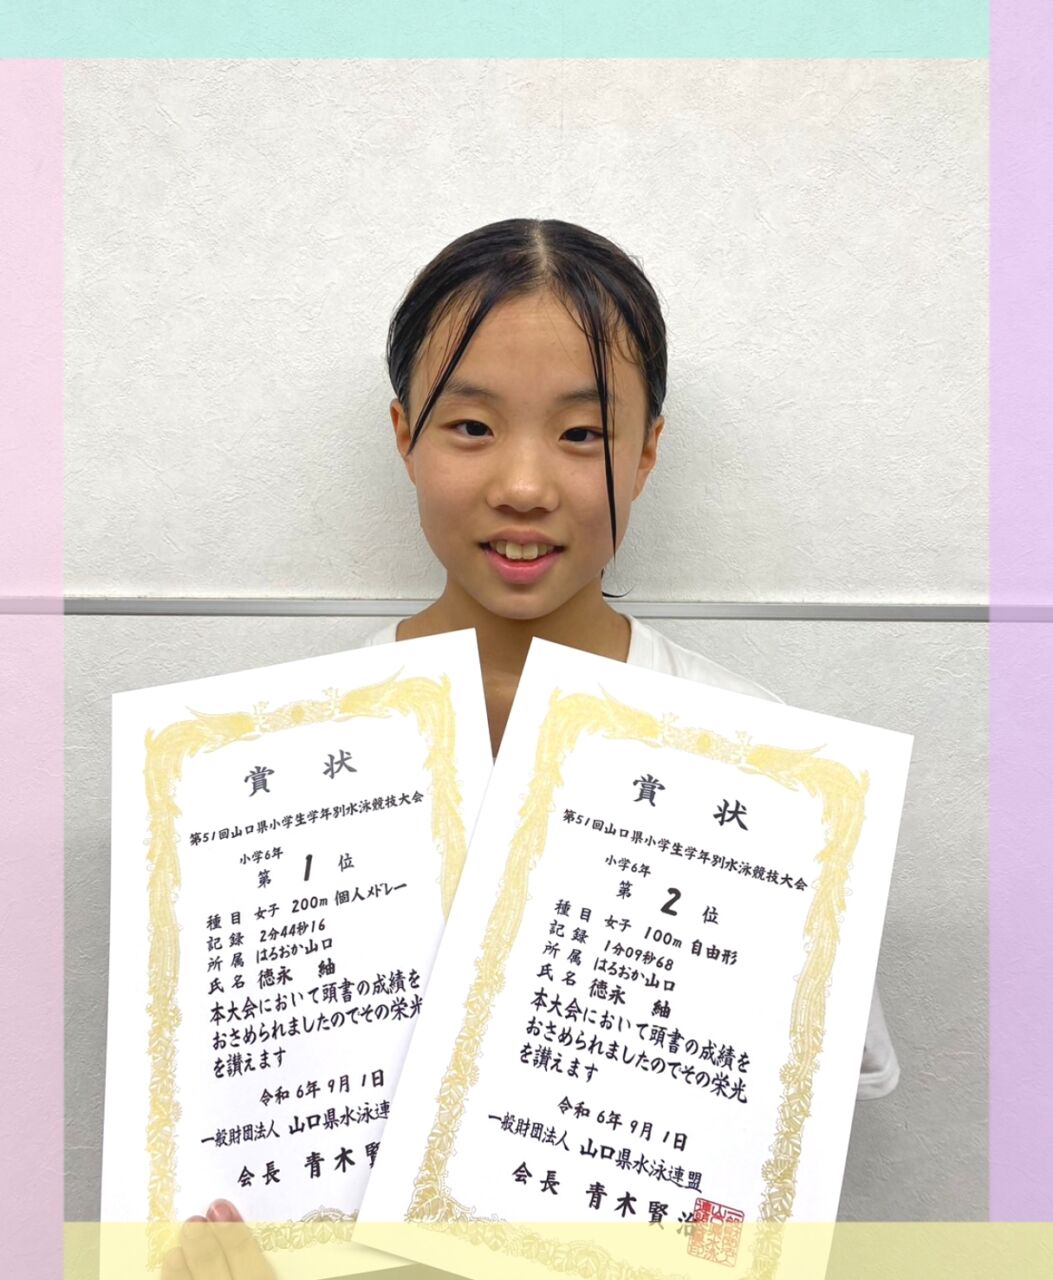 賞 状
第51回山口県小学生学年別水泳競技大会
小学6年
第 1 位
種目 女子 200m 個人メドレー
記録 2分44秒16
所属 はるおか山口
氏名 徳永 紬
本大会において頭書の成績を
おさめられましたのでその栄光
を讃えます
令和 6年 9月 1日
一般財団法人 山口県水泳連
会長 青木賢
賞 状
第51回山口県小学生学年別水泳競技大会
小学6年
第 2 位
種目 女子 100m 自由形
記録 1分09秒68
所属 はるおか山口
氏名 徳永 紬
本大会において頭書の成績を
おさめられましたのでその栄光
を讃えます
令和 6年 9月 1日
一般財団法人 山口県水泳連盟
会長 青木賢治